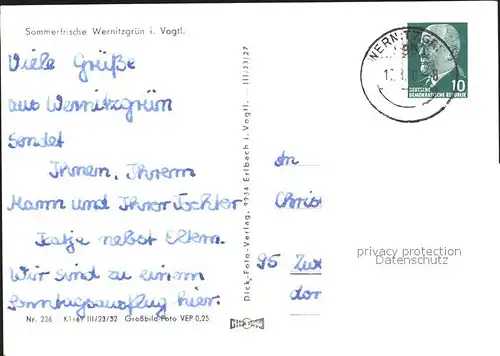 Sommerfrische Wernitzgrün i. Vogtl.
Viele Grüße
aus Wernitzgrün
sendet
Ihnen, Ihrem
Mann und Ihrer Tochter
Katja nebst Eltern.
Wir sind zu einem
Sonntagsausflug hier.
Nr. 236 III/23/52 Großbild-Foto VEP 0,25
Dick-Foto-Verlag, 9234 Erlbach i. Vogtl. — III/23/27
WERNITZGRÜN
10
DEUTSCHE
DEMOKRATISCHE REPUBLIK
An
Chris
privacy protection
Datenschutz
95